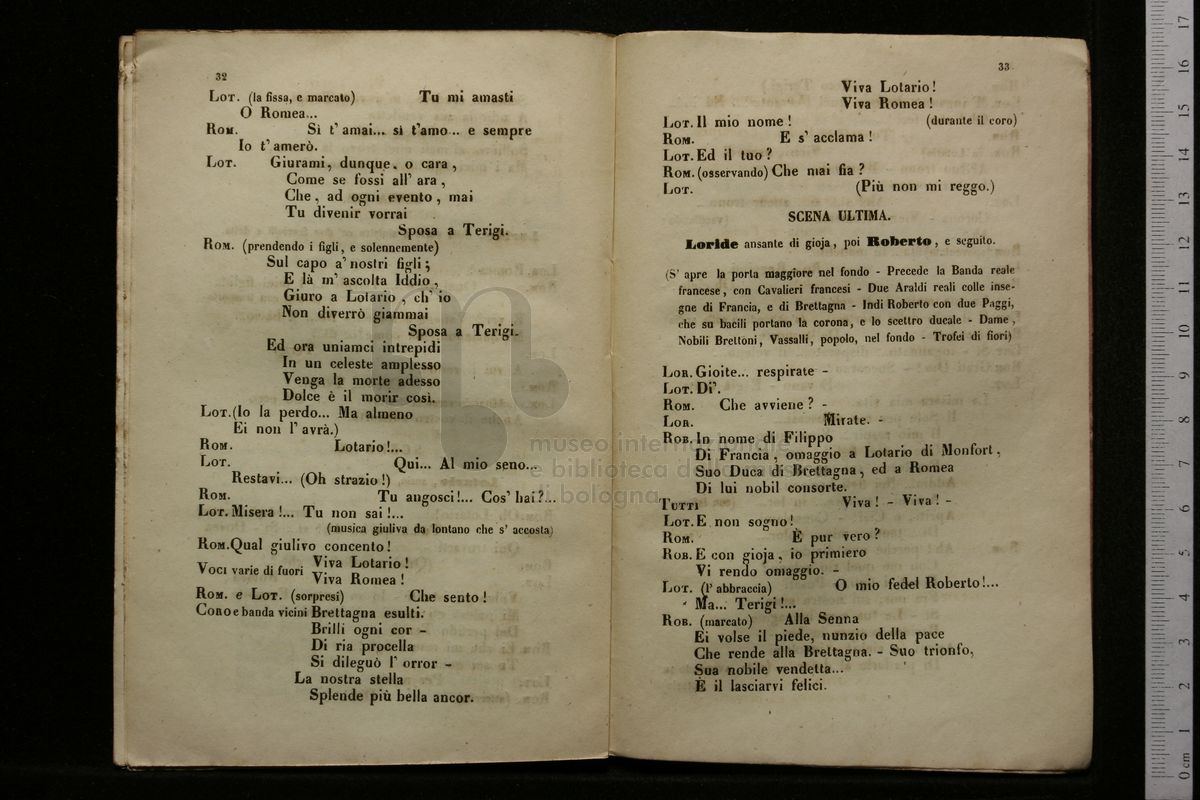 32
LOT. (la fissa, e marcato) Tu mi amasti
O Romea...
ROM. Sì t' amai... sì t'amo... e sempre
Io t' amerò.
LOT. Giurami, dunque, o cara,
Come se fossi all' ara,
Che, ad ogni evento, mai
Tu divenir vorrai
Sposa a Terigi.
ROM. (prendendo i figli, e solennemente)
Sul capo a' nostri figli;
E là m' ascolta Iddio,
Giuro a Lotario, ch' io
Non diverrò giammai
Sposa a Terigi.
Ed ora uniamci intrepidi
In un celeste amplesso
Venga la morte adesso
Dolce è il morir così.
LOT.(Io la perdo... Ma almeno
Ei non l' avrà.)
ROM. Lotario!...
LOT. Qui... Al mio seno...
Restavi... (Oh strazio!)
ROM. Tu angosci!... Cos' hai?...
LOT. Misera!... Tu non sai!...
(musica giuliva da lontano che s' accosta)
ROM. Qual giulivo concento!
VOCI varie di fuori Viva Lotario!
Viva Romea!
ROM. e LOT. (sorpresi) Che sento!
CORO e banda vicini Brettagna esulti.
Brilli ogni cor -
Di ria procella
Si dileguò l' orror -
La nostra stella
Splende più bella ancor.
33
Viva Lotario!
Viva Romea!
LOT. Il mio nome! (durante il coro)
ROM. E s' acclama!
LOT. Ed il tuo?
ROM. (osservando) Che mai fia?
LOT. (Più non mi reggo.)
SCENA ULTIMA.
Loride ansante di gioja, poi Roberto, e seguito.
(S' apre la porta maggiore nel fondo - Precede la Banda reale
francese, con Cavalieri francesi - Due Araldi reali colle inse-
gne di Francia, e di Brettagna - Indi Roberto con due Paggi,
che su bacili portano la corona, e lo scettro ducale - Dame,
Nobili Brettoni, Vassalli, popolo, nel fondo - Trofei di fiori)
LOR. Gioite... respirate -
LOT. Di'.
ROM. Che avviene? -
LOR. Mirate. -
ROB. In nome di Filippo
Di Francia, omaggio a Lotario di Monfort,
Suo Duca di Brettagna, ed a Romea
Di lui nobil consorte.
TUTTI Viva! - Viva! -
LOT. E non sogno!
ROM. È pur vero?
ROB. E con gioja, io primiero
Vi rendo omaggio. -
LOT. (l' abbraccia) O mio fedel Roberto!...
Ma... Terigi!...
ROB. (marcato) Alla Senna
Ei volse il piede, nunzio della pace
Che rende alla Brettagna. - Suo trionfo,
Sua nobile vendetta...
È il lasciarvi felici.
museo internazionale
e biblioteca della musica
di bologna
0 cm 1 2 3 4 5 6 7 8 9 10 11 12 13 14 15 16 17